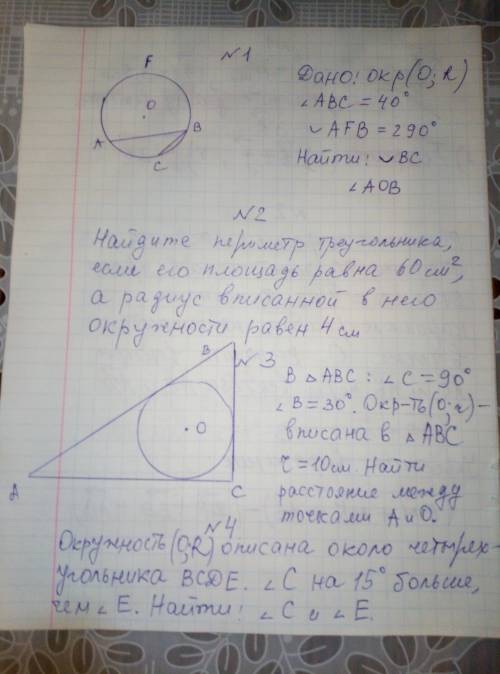 N1
F
O
A
B
C
Дано: окр(O; R)
∠ABC = 40°
◡AFB = 290°
Найти: ◡BC
∠AOB
N2
Найдите периметр треугольника,
если его площадь равна 60 см²,
а радиус вписанной в него
окружности равен 4 см
N3
B
O
A
C
В △ABC: ∠C = 90°
∠B = 30°. Окр-ть(O; r) -
вписана в △ABC
r = 10см. Найти
расстояние между
точками A и O.
N4
Окружность(O;R) описана около четырёх-
угольника BCDE. ∠C на 15° больше,
чем ∠E. Найти: ∠C и ∠E.